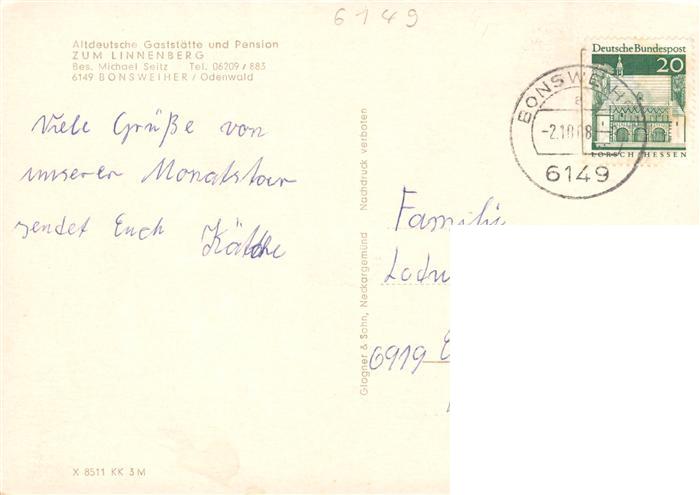 6149
Altdeutsche Gaststätte und Pension
ZUM LINNENBERG
Bes. Michael Seitz Tel. 06209 / 883
6149 BONSWEIHER / Odenwald
Viele Grüße von
unserer Monatstour
sendet Euch Käthe
X 8511 KK 3 M
Glogner & Sohn, Neckargemünd Nachdruck verboten
Deutsche Bundespost
20
LORSCH/HESSEN
BONSWEIHE
a
-2.10.68
6149
Familie
6919